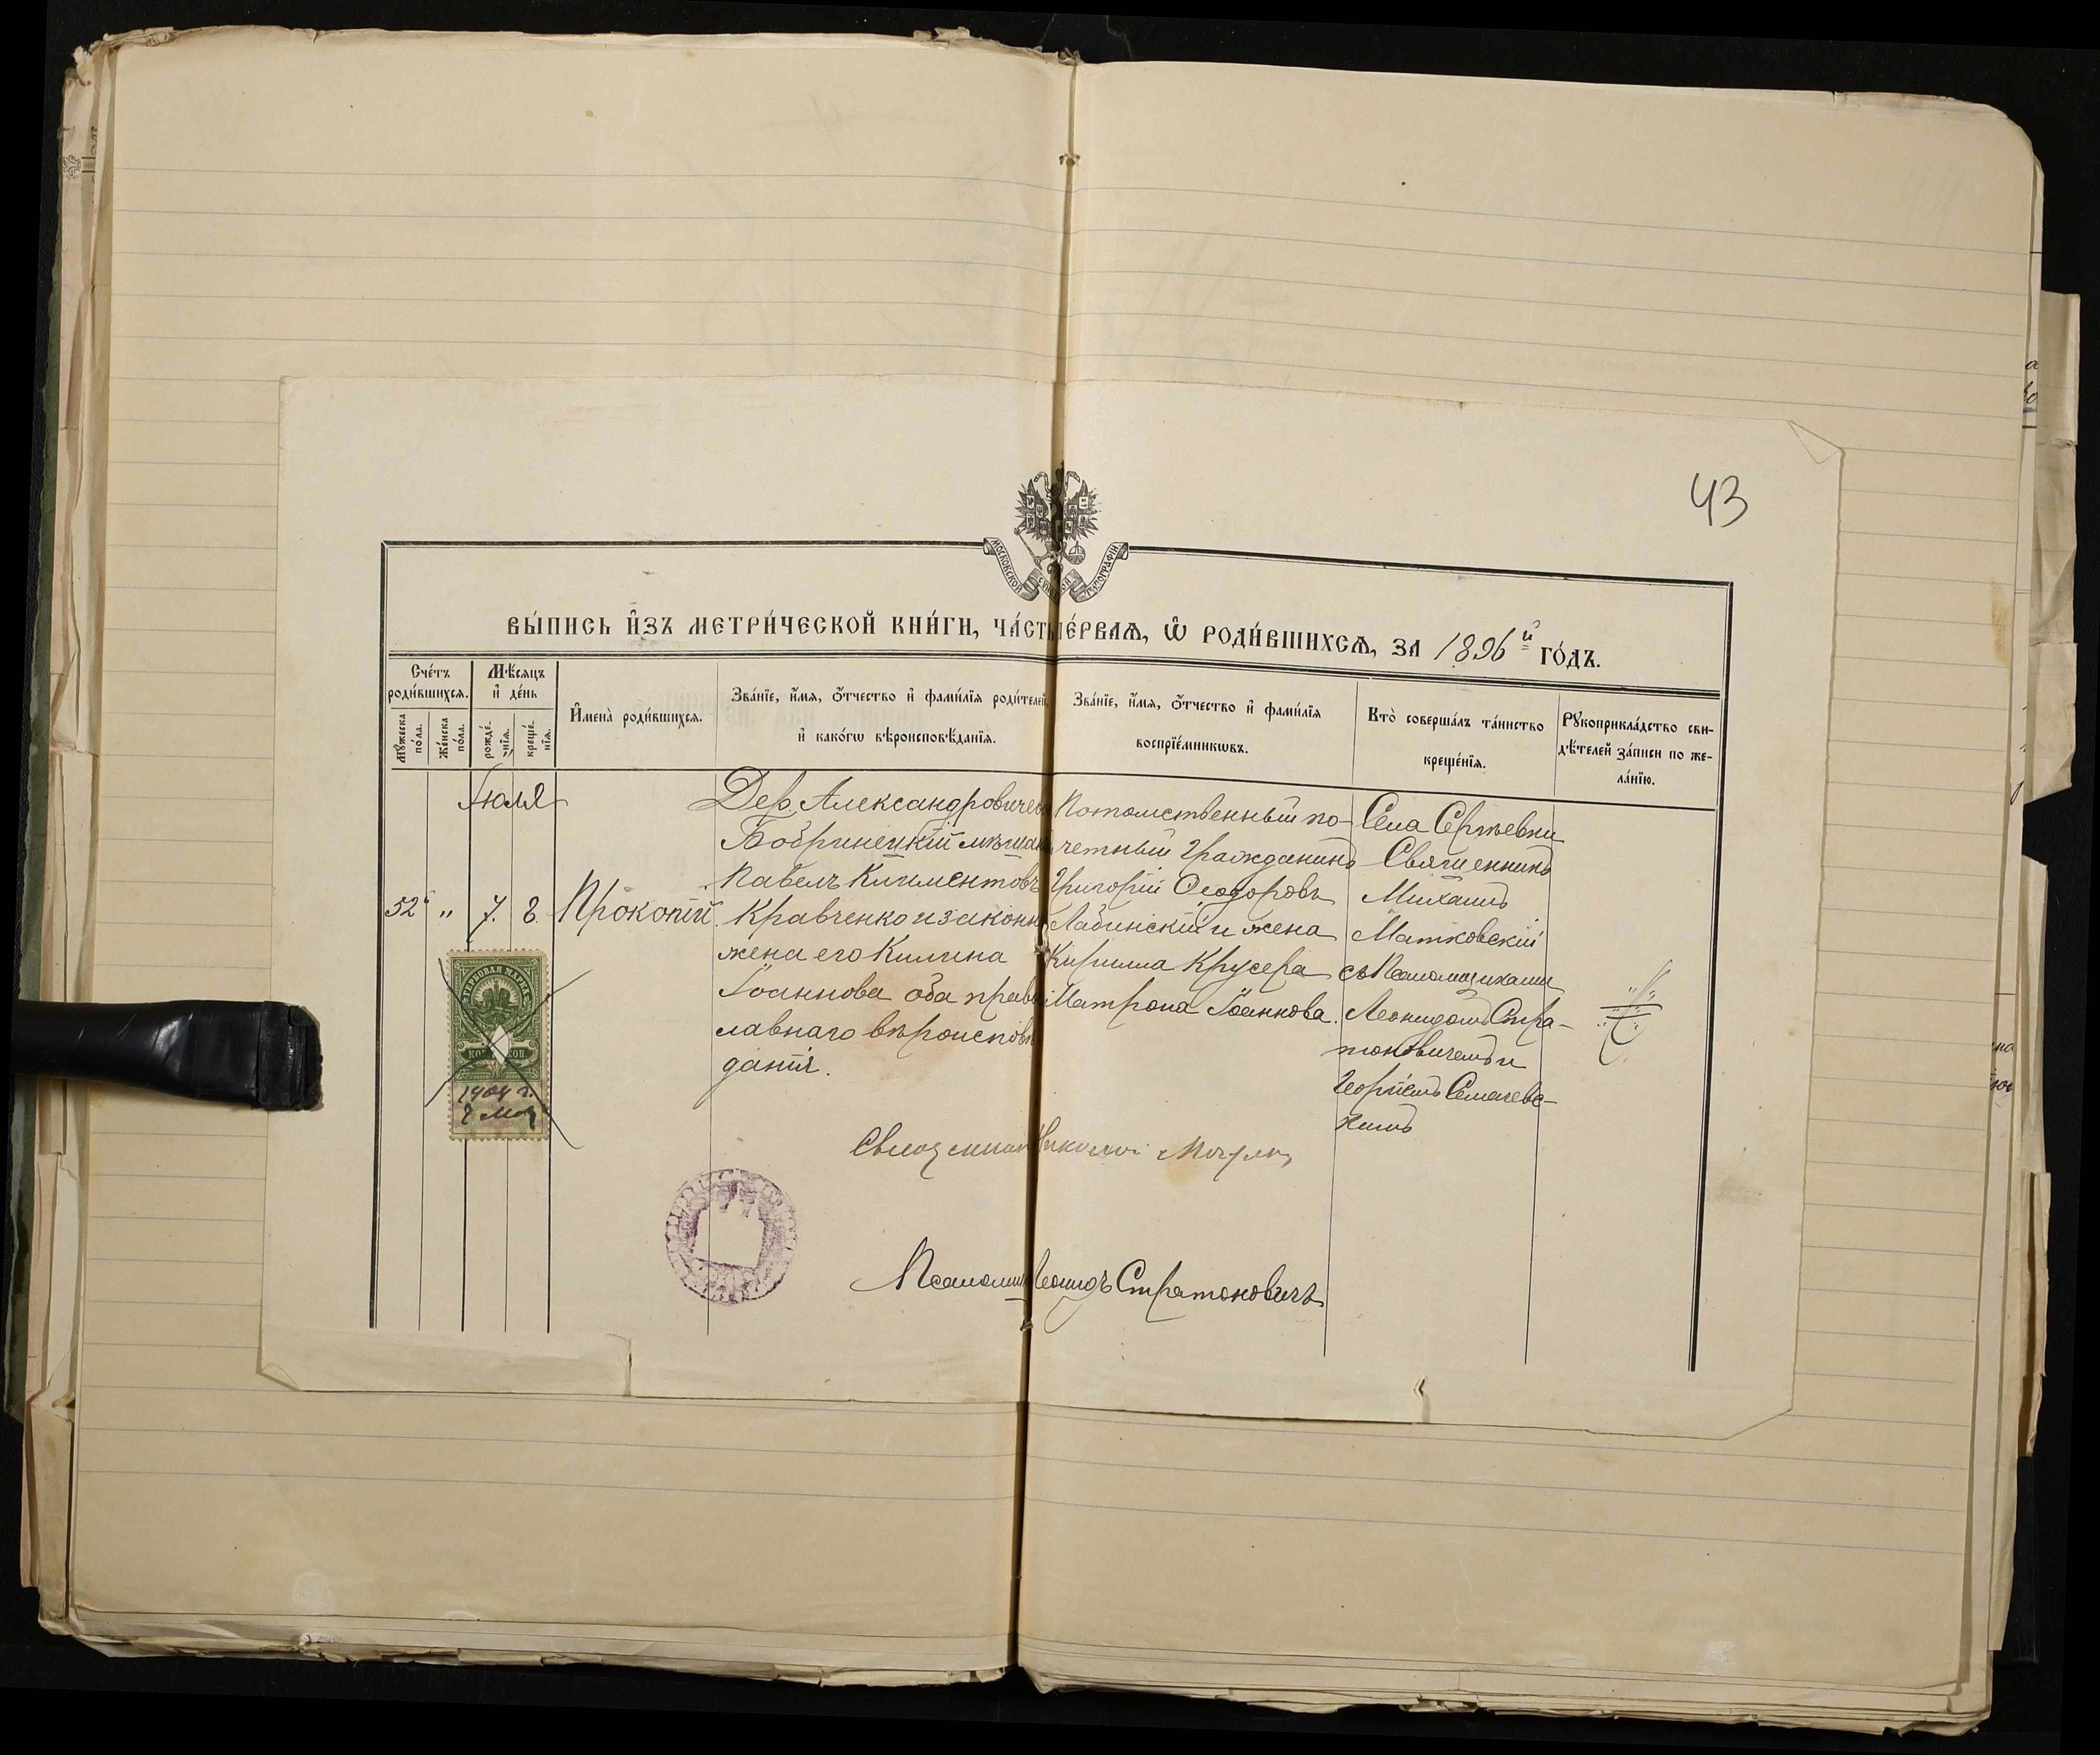 43
МОСКОВСКОЙ СѴНОДАЛЬНОЙ ТИПОГРАФІИ
ВЫ́ПИСЬ И҆ЗЪ МЕТРИ́ЧЕСКОЙ КНИ́ГИ, ЧА́СТЬ ПЕ́РВАѦ, Ѡ҆ РОДИ́ВШИХСѦ, ЗА 1896й ГО́ДЪ.
Сче́тъ роди́вшихсѧ.
Мꙋ́жеска по́ла.
Же́нска по́ла.
Мѣ́сѧцъ и҆ де́нь
рожде́нїѧ.
креще́нїѧ.
И҆мена̀ роди́вшихсѧ.
Зва́нїе, и҆́мѧ, ѻ҆́тчество и҆ фами́лїѧ роди́телей,
и҆ како́гѡ вѣроисповѣ́данїѧ.
Зва́нїе, и҆́мѧ, ѻ҆́тчество и҆ фами́лїѧ
воспрїе́мникѡвъ.
Кто̀ соверша́лъ та́инство
креще́нїѧ.
Рꙋкоприкла́дство сви-
дѣ́телей за́писи по же-
ла́нїю.
Іюля
52й " 7. 8. Прокопій.
Дер. Александровичево
Бобринецкій мѣщан
Павелъ Климентовъ
Кравченко и законн
жена его Килина
Іоаннова оба право
славнаго вѣроисповѣ
данія.
Потомственный по-
четный Гражданинъ
Григорій Ѳеодоровъ
Лабинскій и жена
Кирилла Крусера
Матрона Іоаннова.
Села Сергѣевки
Священникъ
Михаилъ
Матковскій
съ Псаломщиками
Леонидомъ Стра-
тоновичемъ и
Георгіемъ
ГЕРБОВАЯ МАРКА
КОП. КОП.
1904 г.
Священникъ Николай
Псаломщ Леонидъ Стратоновичъ